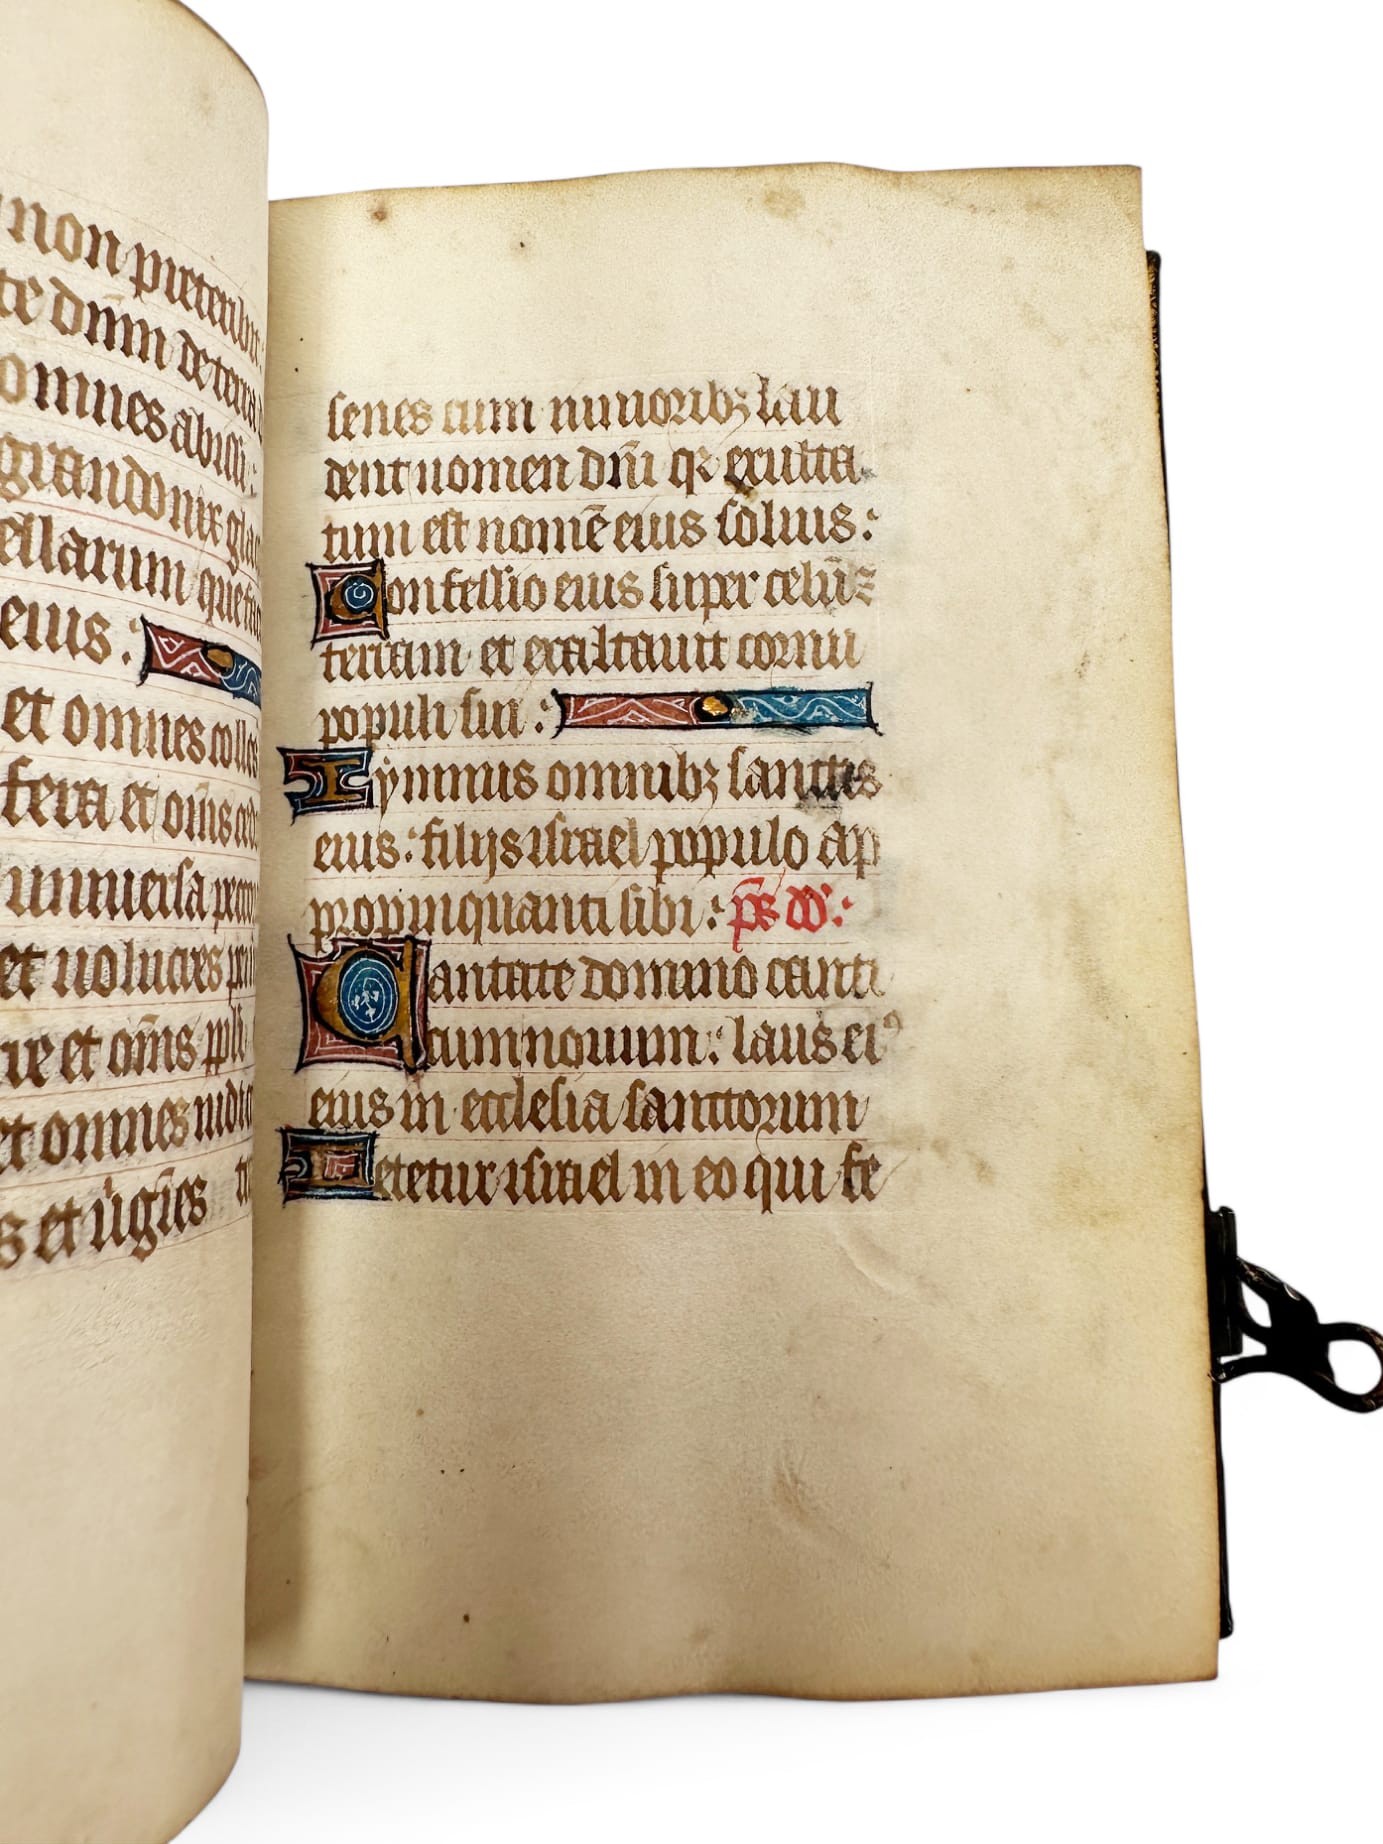 non preteribit:
te dn̄m de terra d
omnes abissi:
grando nix gla
ellarum que fac
eius:
et omnes colles
fera et om̄s ced
uniuersa peco
et uolucres pen
re et om̄s ppl̄i
et omnes iudic
s et uirgines
senes cum iunioribꝫ lau
dent nomen dn̄i qꝛ exulta
tum est nomē eius solius:
Confessio eius super celū ⁊
terram et exaltauit cornu
populi sui:
Hymnus omnibꝫ sanctis
eius: filijs israel populo ap
propinquanti sibi: p̄s dd:
Cantate domino canti
cum nouum: laus eiꝰ
eius in ecclesia sanctorum
Letetur israel in eo qui fe